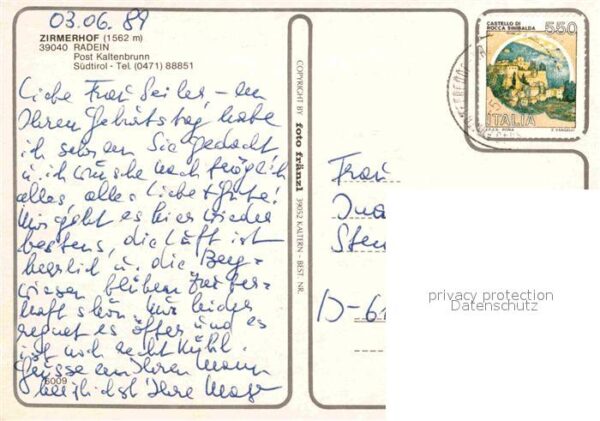 03.06.89
ZIRMERHOF (1562 m)
39040 RADEIN
Post Kaltenbrunn
Südtirol - Tel. (0471) 88851
Liebe Frau Seiler, - an
Ihren Geburtstag habe
ich schon an Sie gedacht
u. ich wünsche nachträglich
alles, alles Liebe + Gute!
Mir geht es hier wieder
bestens, die Luft ist
herrlich u. die Berg-
wiesen blühen zauber-
haft schön, nur leider
regnet es öfter und es
ist noch recht kühl.
Grüsse an Ihren Mann
herzlichst Ihre
6009
COPYRIGHT BY foto fränzl 39052 KALTERN - BEST. NR.
CASTELLO DI
ROCCA SINIBALDA
550
ITALIA
I.P.Z.S. ROMA E. VANGELLI
Frau
D-61
privacy protection
Datenschutz